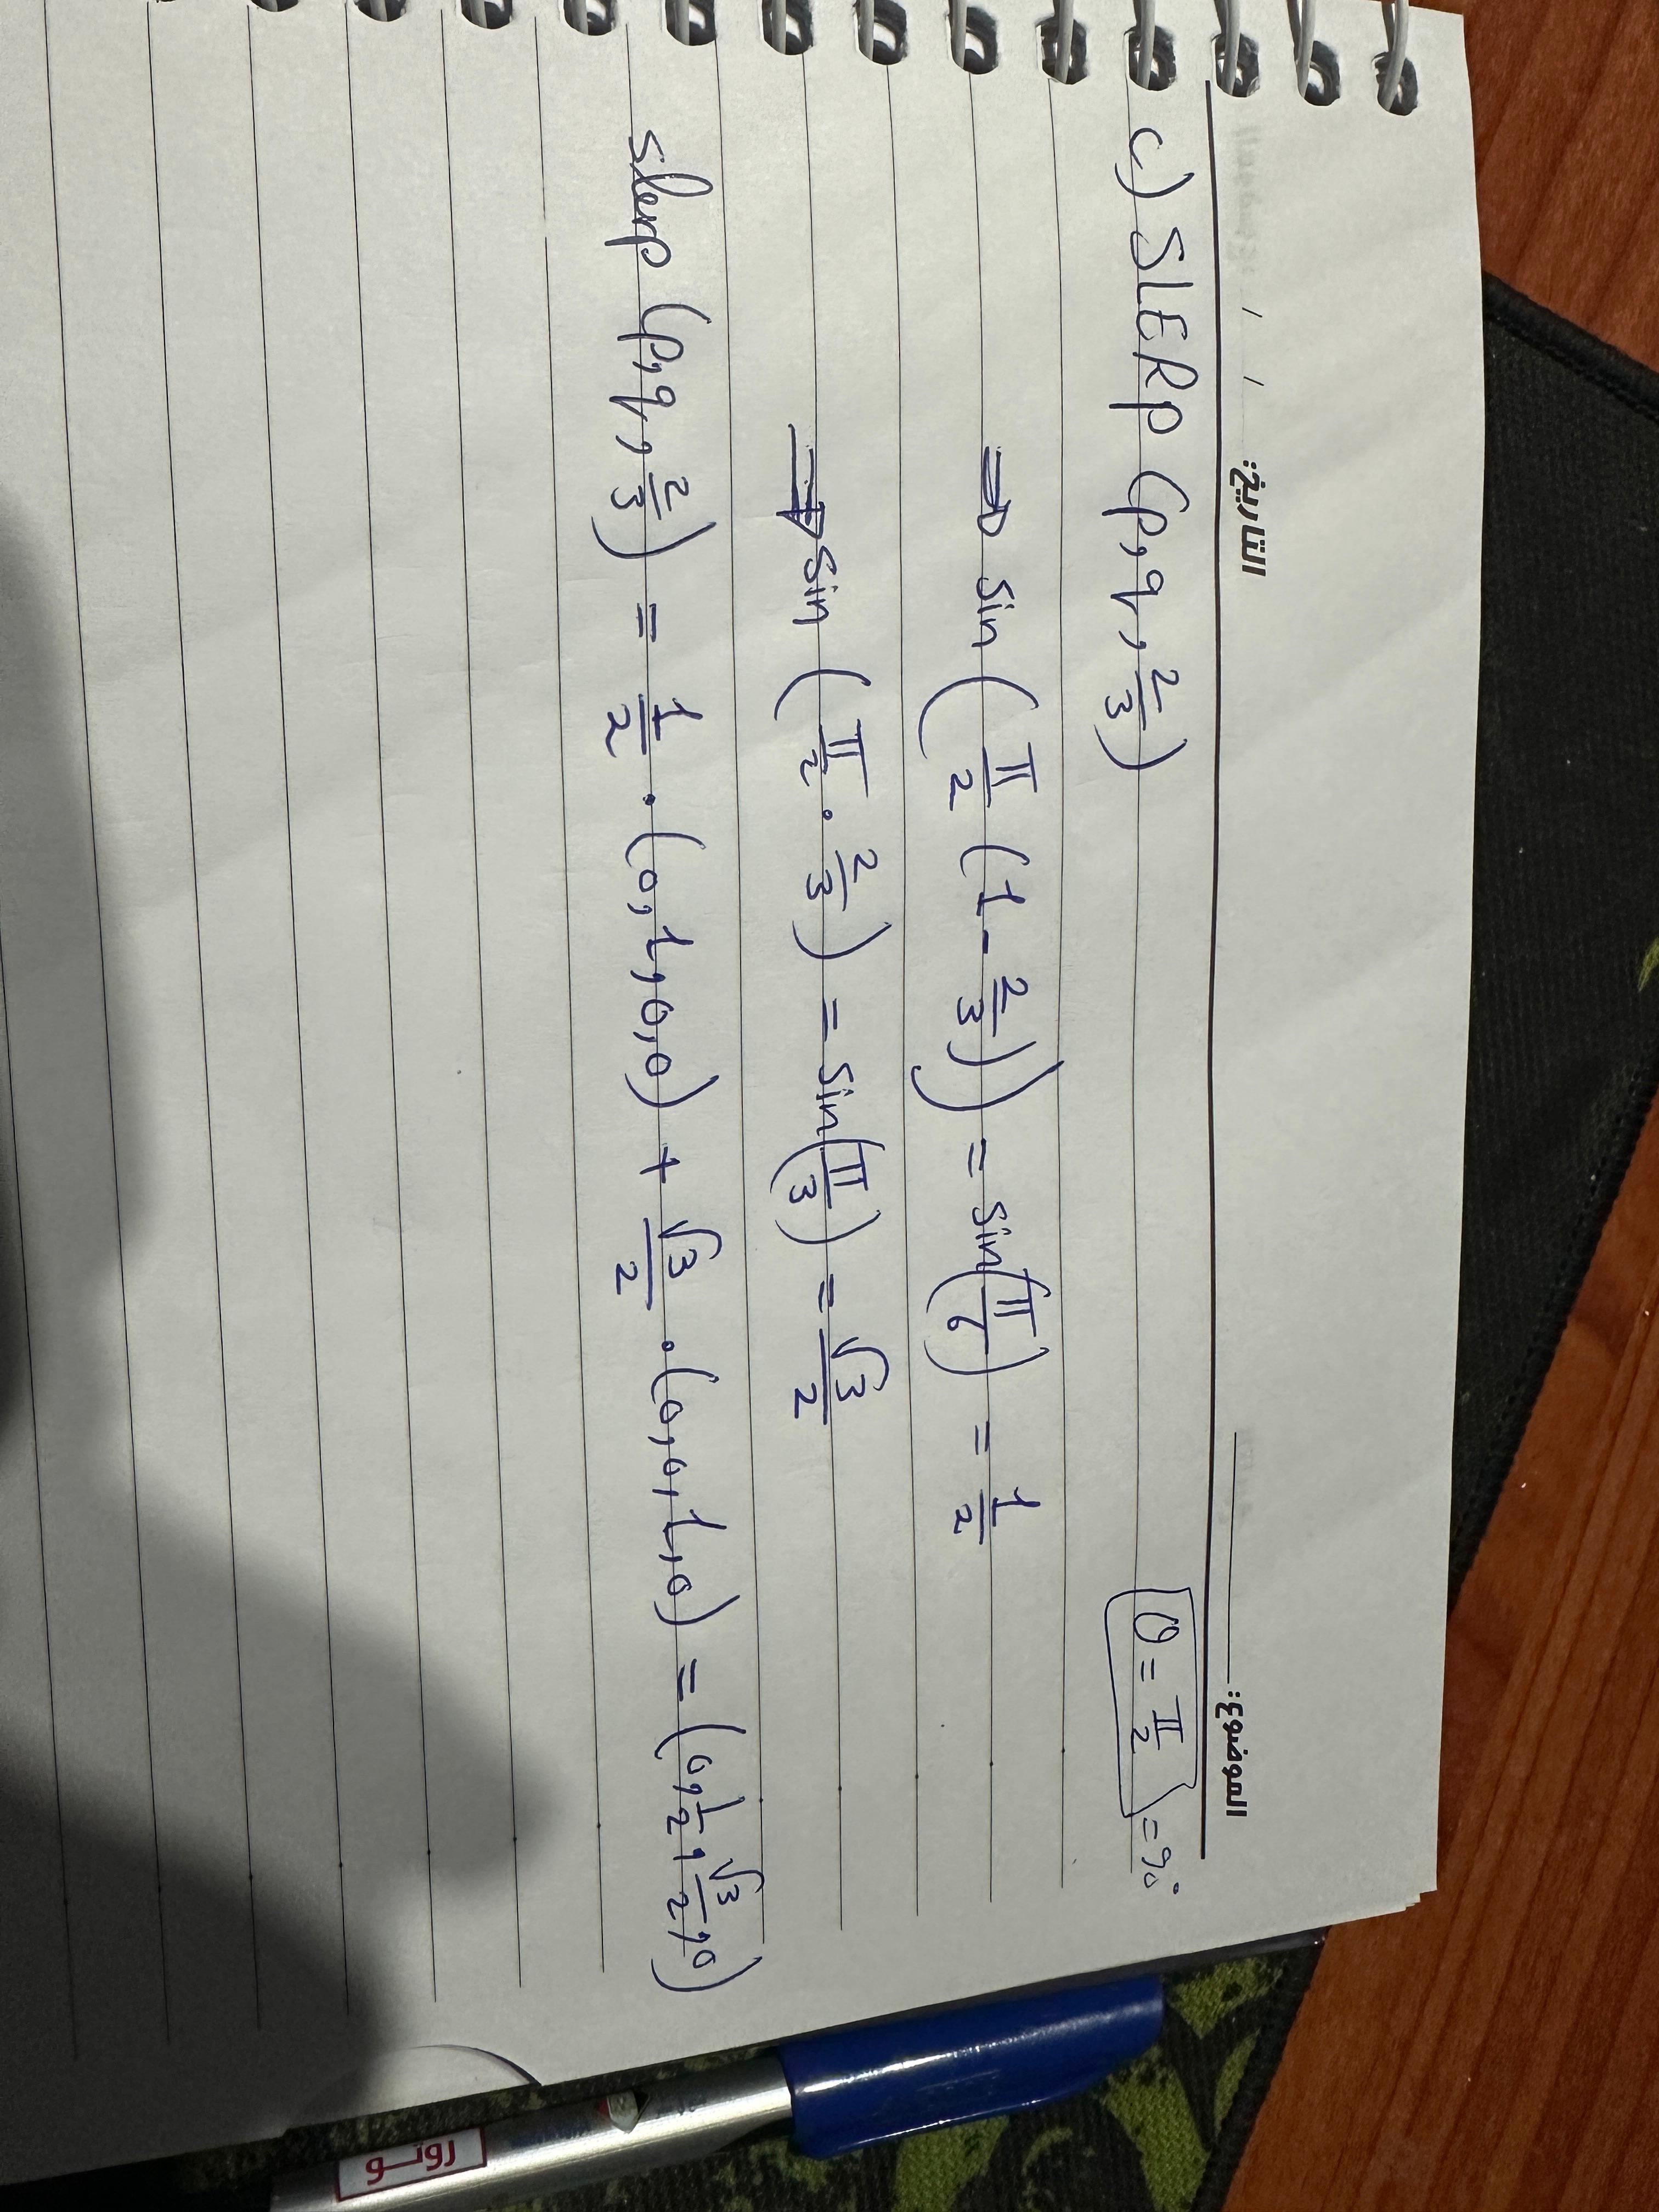 الموضوع: التاريخ: / /
c) SLERP (p,q, 2/3) θ = π/2 = 90°
⇒ sin (π/2 (1 - 2/3)) = sin(π/6) = 1/2
⇒ sin (π/2 · 2/3) = sin(π/3) = √3/2
slerp (p,q, 2/3) = 1/2 · (0,1,0,0) + √3/2 · (0,0,1,0) = (0, 1/2, √3/2, 0)
رونــو